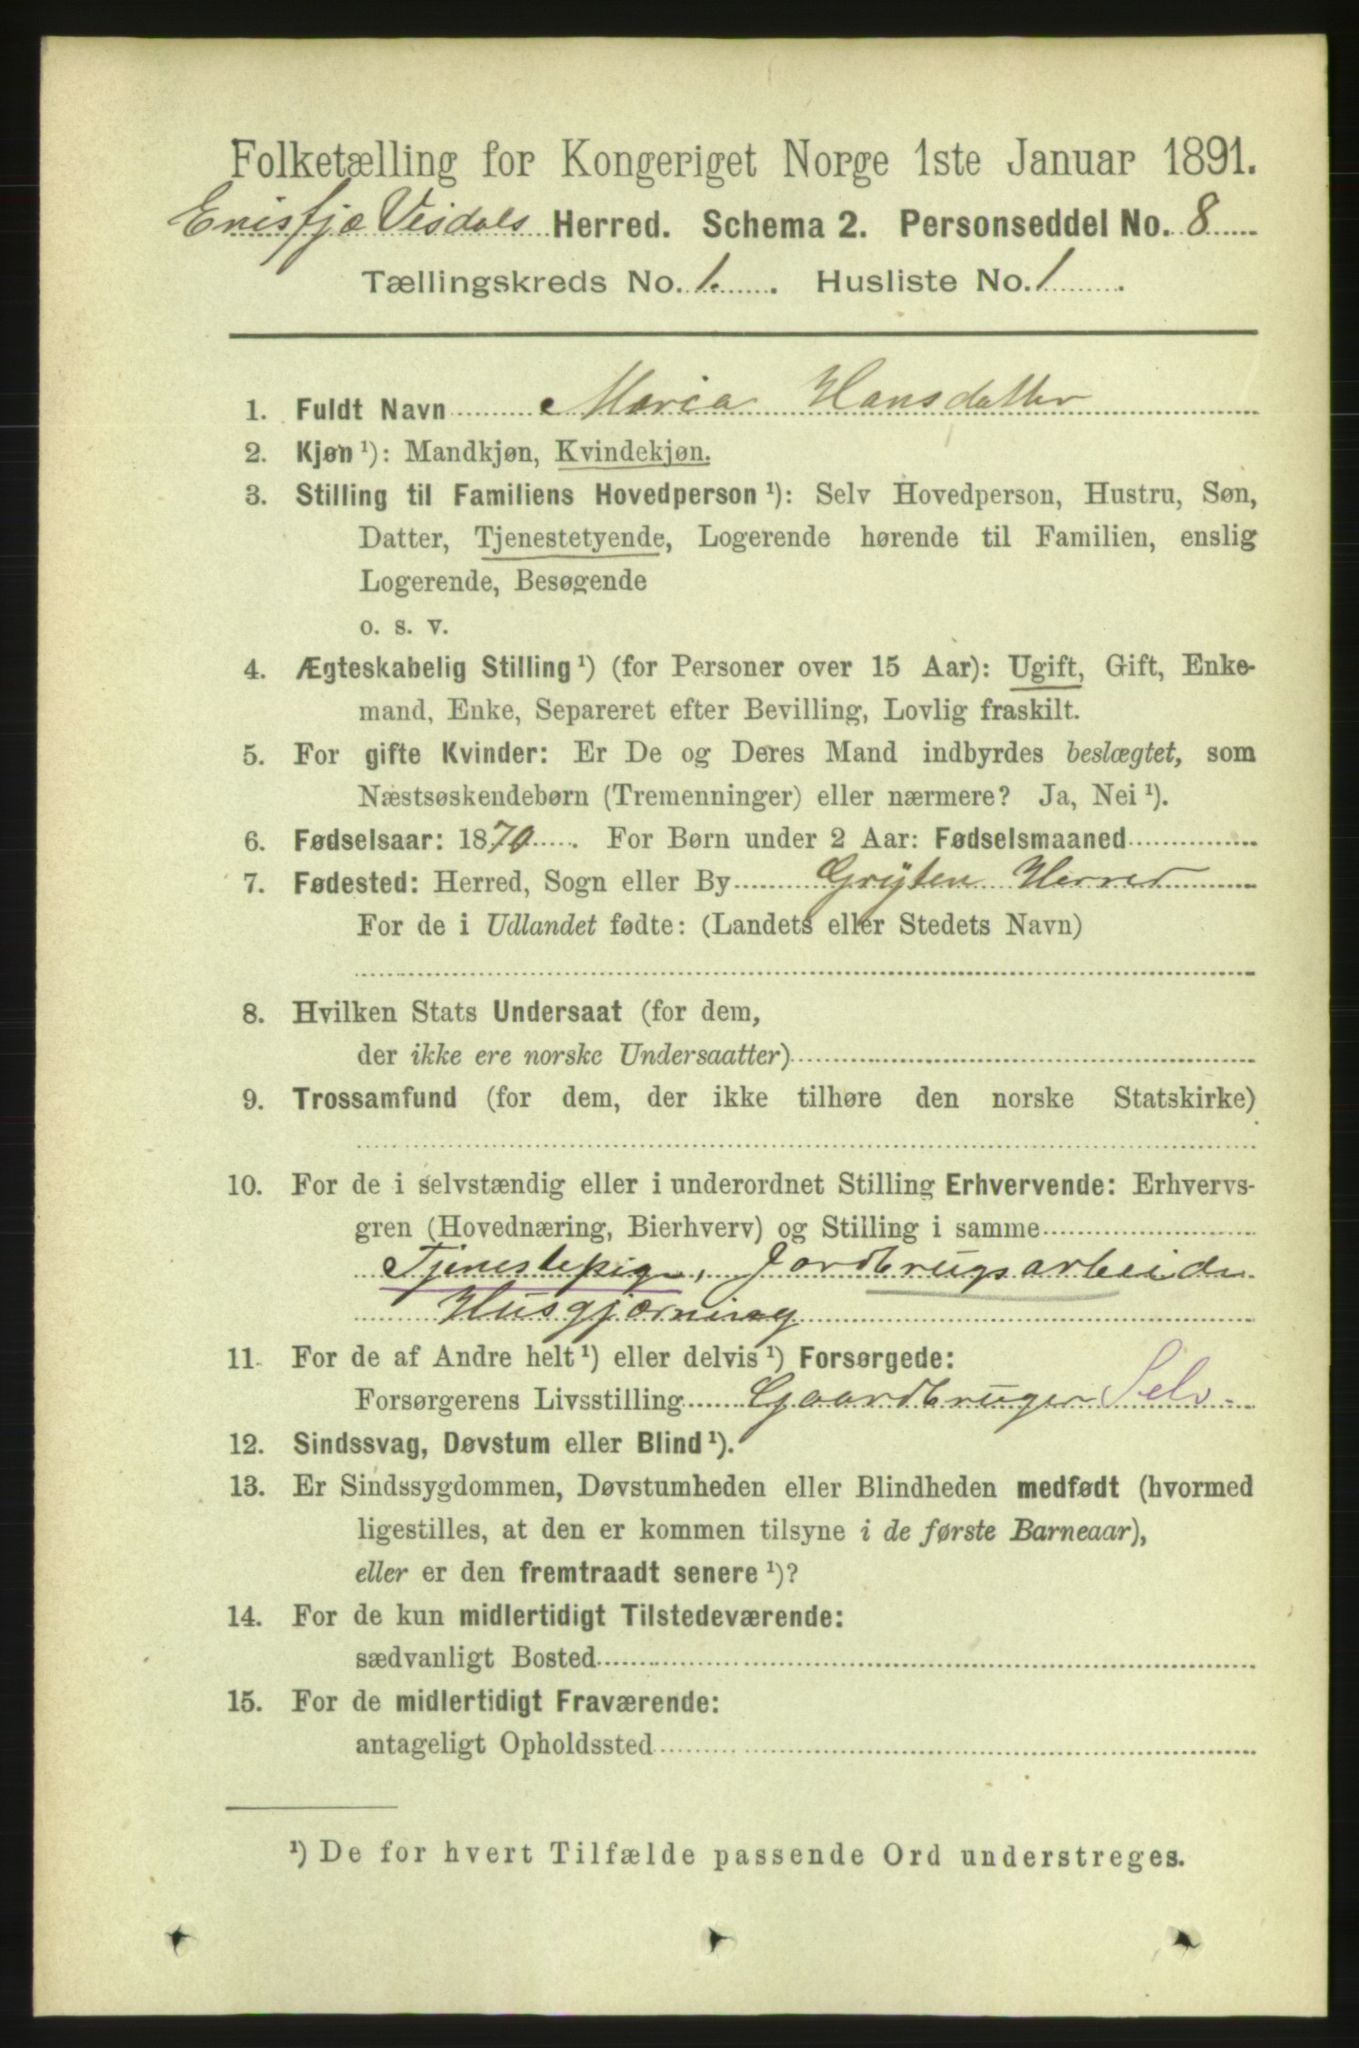 Folketælling for Kongeriget Norge 1ste Januar 1891.
Vesdals Herred. Schema 2. Personseddel No. 8
Tællingskreds No. 1. Husliste No. 1
1. Fuldt Navn Maria Hansdatter
2. Kjøn ¹): Mandkjøn, Kvindekjøn.
3. Stilling til Familiens Hovedperson ¹): Selv Hovedperson, Hustru, Søn,
Datter, Tjenestetyende, Logerende hørende til Familien, enslig
Logerende, Besøgende
o. s. v.
4. Ægteskabelig Stilling ¹) (for Personer over 15 Aar): Ugift, Gift, Enke-
mand, Enke, Separeret efter Bevilling, Lovlig fraskilt.
5. For gifte Kvinder: Er De og Deres Mand indbyrdes beslægtet, som
Næstsøskendebørn (Tremenninger) eller nærmere? Ja, Nei ¹).
6. Fødselsaar: 1870. For Børn under 2 Aar: Fødselsmaaned
7. Fødested: Herred, Sogn eller By Gryten Herred
For de i Udlandet fødte: (Landets eller Stedets Navn)
8. Hvilken Stats Undersaat (for dem,
der ikke ere norske Undersaatter)
9. Trossamfund (for dem, der ikke tilhøre den norske Statskirke)
10. For de i selvstændig eller i underordnet Stilling Erhvervende: Erhvervs-
gren (Hovednæring, Bierhverv) og Stilling i samme
Tjenestepige, Jordbrugsarbeide
Husgjærning
11. For de af Andre helt ¹) eller delvis ¹) Forsørgede:
Forsørgerens Livsstilling Gaardbruger Selv
12. Sindssvag, Døvstum eller Blind ¹).
13. Er Sindssygdommen, Døvstumheden eller Blindheden medfødt (hvormed
ligestilles, at den er kommen tilsyne i de første Barneaar),
eller er den fremtraadt senere ¹)?
14. For de kun midlertidigt Tilstedeværende:
sædvanligt Bosted
15. For de midlertidigt Fraværende:
antageligt Opholdssted
¹) De for hvert Tilfælde passende Ord understreges.